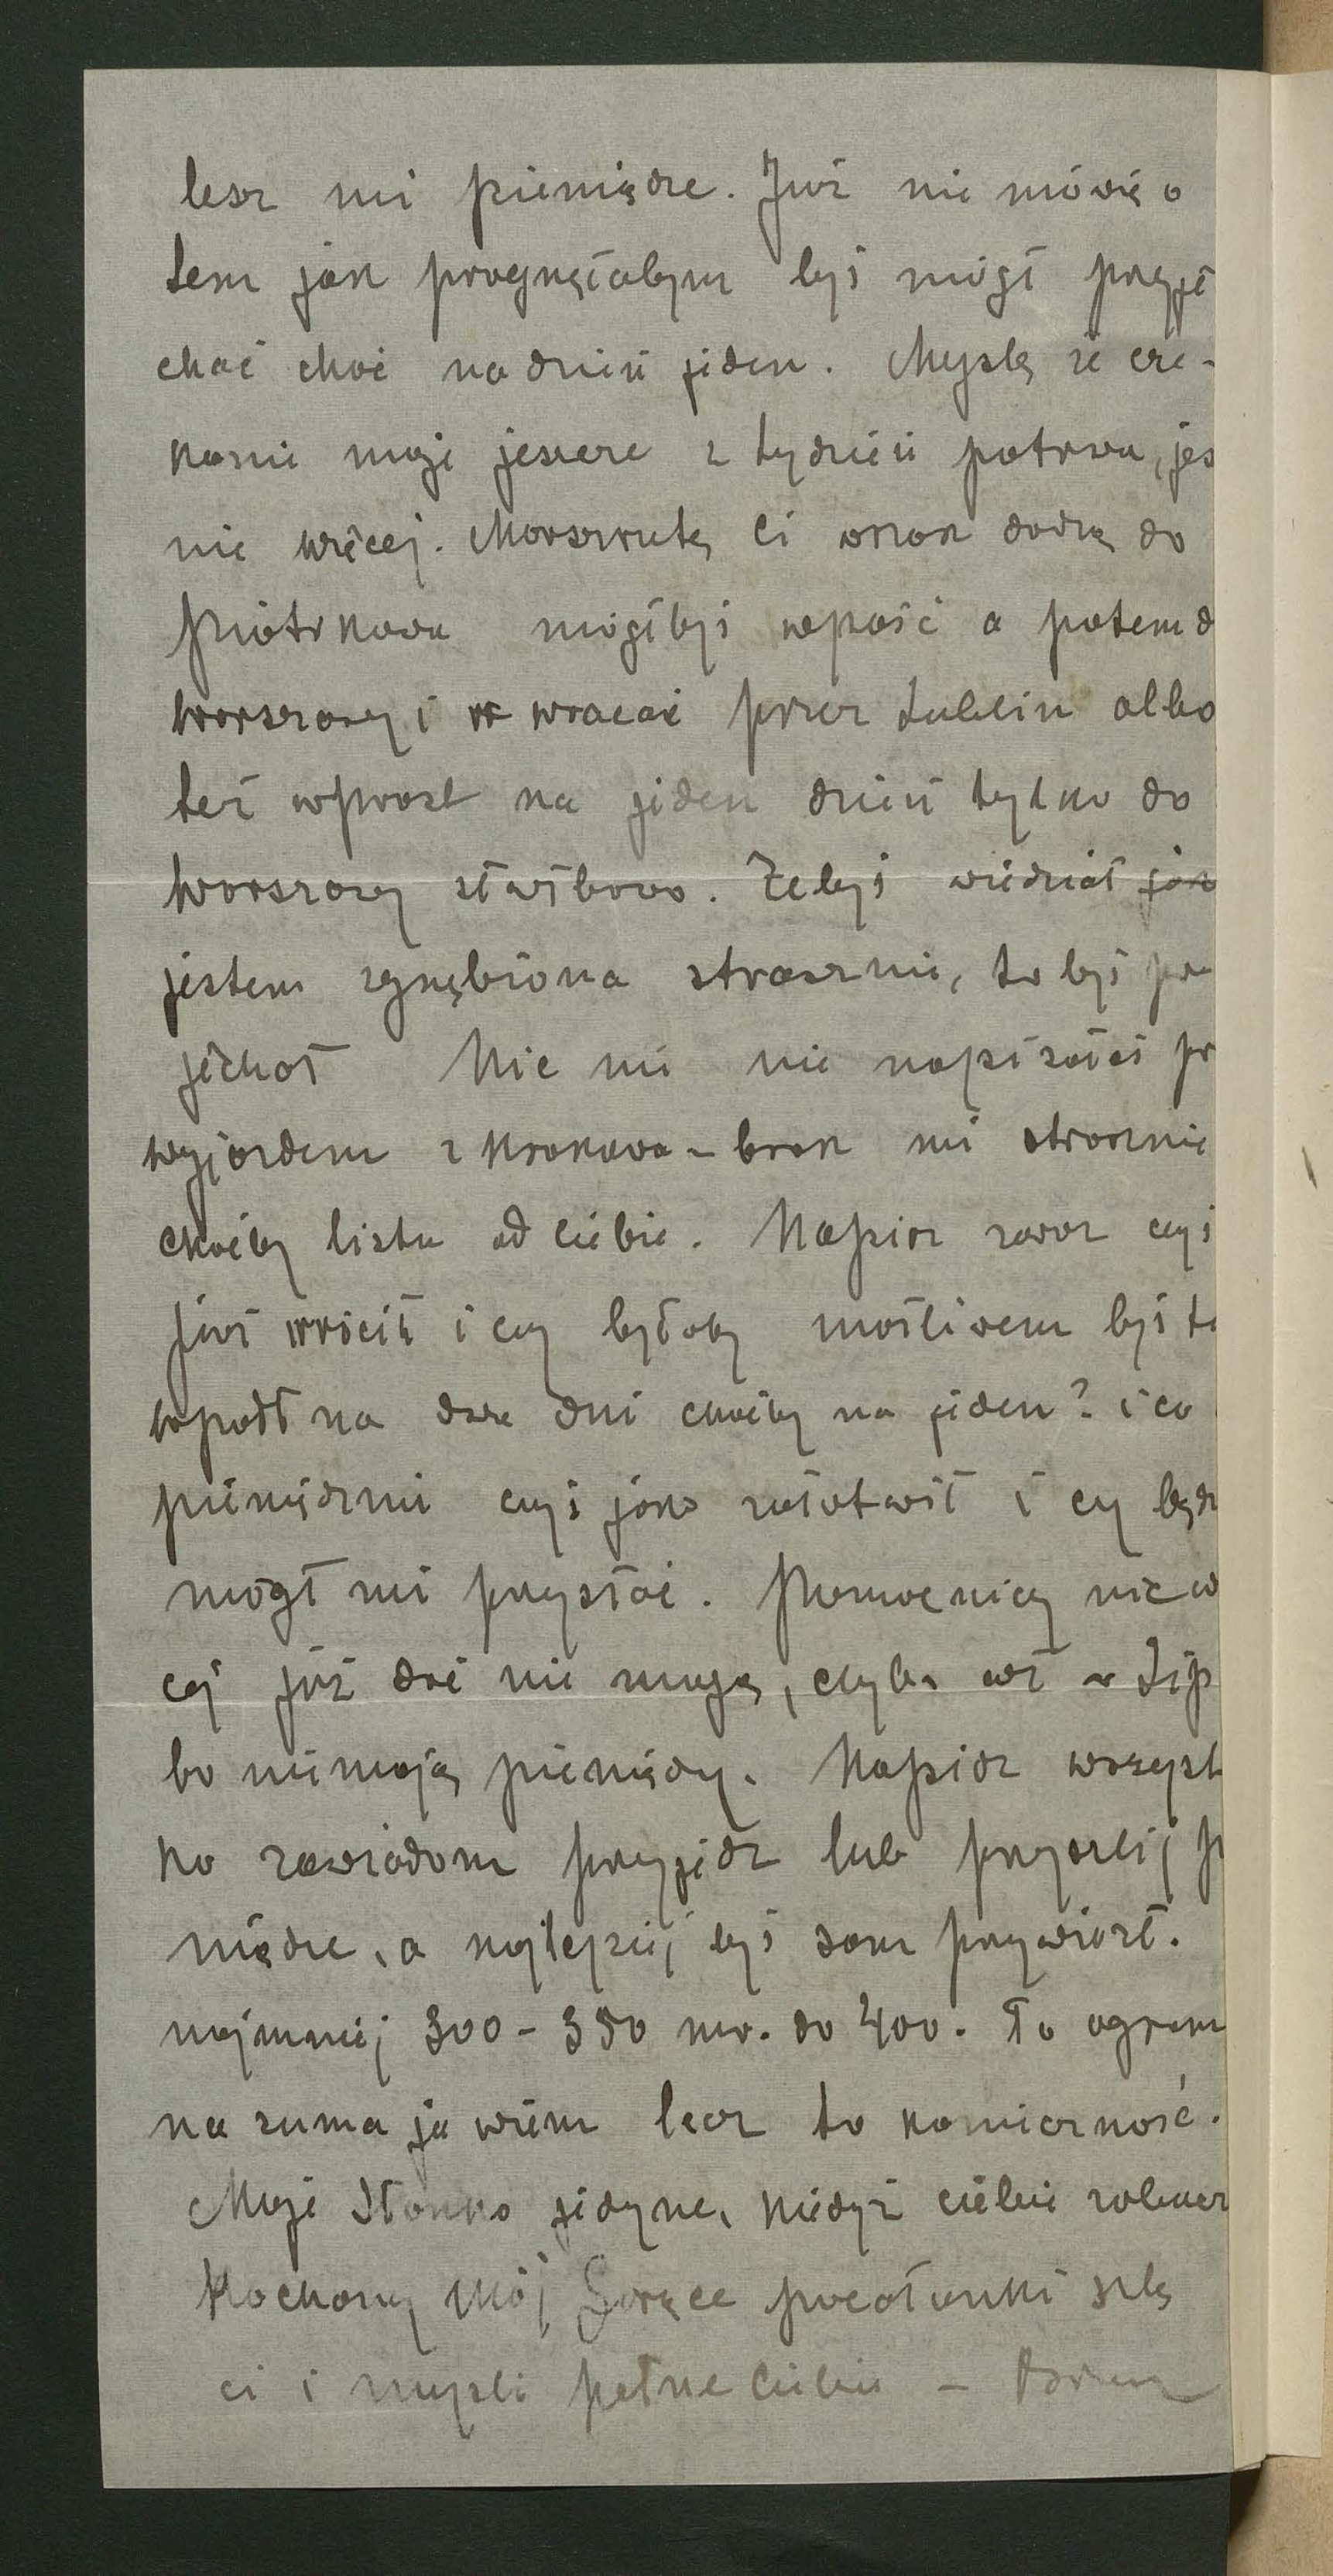 lesz mi pieniądze. Już nie mówię o
tem jak pragnęłabym byś mógł przyje
chać choć na dzień jeden. Myślę że cze-
kanie moje jeszcze z tydzień potrwa, jeś
nie więcej. Marszrutę Ci wszak dadzą do
Piotrkowa mógłbyś wpaść a potem d
Warszawy i wracać przez Lublin albo
też wprost na jeden dzień tylko do
Warszawy służbowo. Żebyś wiedział jak
jestem zgnębiona strasznie, to byś prz
jechał Nic mi nie napisałeś pr
wyjazdem z Krakowa – brak mi strasznie
choćby listu od Ciebie. Napisz zaraz czyś
już wrócił i czy byłoby możliwem byś tu
wpadł na dwa dni choćby na jeden? i co
pieniędzmi czyś jako załatwił i czy będz
mógł mi przysłać. Pomocnicy nic w
cej już dać nie mogą, chyba aż w Lip
bo nie mają pieniędzy. Napisz wszyst
ko zawiadom przyjedź lub przyszlij p
niądze, a najlepiej byś sam przywiózł.
najmniej 300 – 350 mr. do 400. To ogrom
na suma ja wiem lecz to konieczność.
Moje Słonko jedyne, kiedyż ciebie zobacz
Kochany Mój Gorące pocałunki ślę
ci i myśli pełne Ciebie –